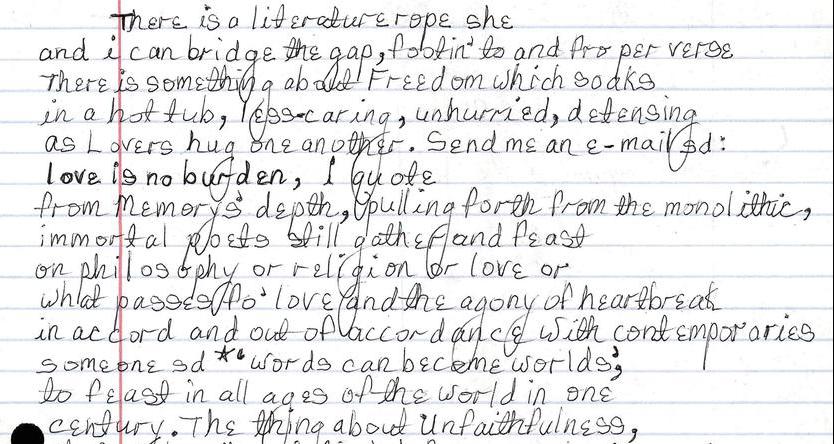 There is a literature rope she
and i can bridge the gap, footin' to and fro per verse
There is something about Freedom which soaks
in a hot tub, less-caring, unhurried, detensing
as Lovers hug one another. Send me an e-mail sd:
love is no burden, I quote
from Memory's depth, pulling forth from the monolithic,
immortal poets still gather and feast
on philosophy or religion or love or
what passes fo' love and the agony of heartbreak
in accord and out of accordance with contemporaries
someone sd *" words can become worlds;
to feast in all ages of the world in one
century. The thing about Unfaithfulness,